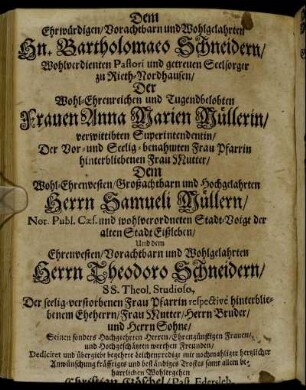 Dem
Ehrwürdigen/ Vorachtbarn und Wohlgelahrten
Hn. Bartholomaeo Schneidern/
Wohlverdienten Pastori und getreuen Seelsorger
zu Rieth-Nordhausen/
Der
Wohl-Ehrenreichen und Tugendbelobten
Frauen Anna Marien Müllerin/
verwittibten Superintendentin/
Der Vor- und Seelig-benahmten Frau Pfarrin
hinterbliebenen Frau Mutter/
Dem
Wohl-Ehrenvesten/ Großachtbarn und Hochgelahrten
Herrn Samueli Müllern/
Not. Publ. Cæs. und wohlverordneten Stadt-Voigt der
alten Stadt Eißleben/
Und dem
Ehrenvesten/ Vorachtbarn und Wohlgelahrten
Herrn Theodoro Schneidern/
SS. Theol. Studioso,
Der seelig-verstorbenen Frau Pfarrin respectivè hinterblie-
benem Eheherrn/ Frau Mutter/ Herrn Bruder/
und Herrn Sohne/
Seinen sonders Hochgeehrten Herrn/ Ehrengünstigen Frauen/
und Hochgeschätzten werthen Freunden/
Dediciret und übergiebt begehrte Leichenpredigt mit nochmahliger hertzlicher
Anwünschung kräfftiges und beständiges Trostes samt allen be-
harrlichen Wohlergehen